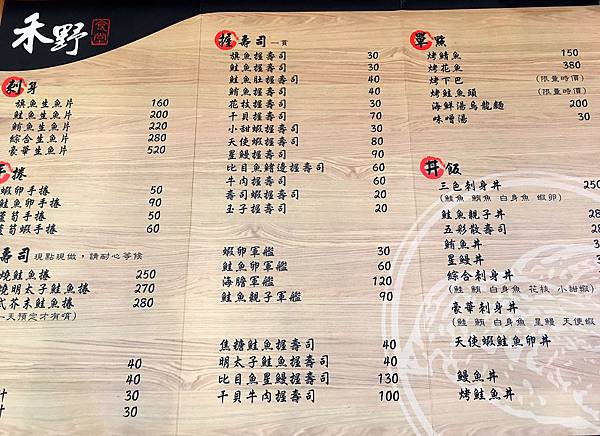 禾野 食堂
刺身
旗魚生魚片 160
鮭魚生魚片 200
鮪魚生魚片 220
綜合生魚片 280
豪華生魚片 520
手捲
蝦卵手捲 50
鮭魚卵手捲 90
蘆筍手捲 50
蘆筍蝦手捲 60
壽司 現點現做,請耐心等候
燒鮭魚捲 250
燒明太子鮭魚捲 270
式芥末鮭魚捲 280
一天預定才有唷)
40
40
汁 30
汁 30
握壽司 一貫
旗魚握壽司 30
鮭魚握壽司 40
鮭魚肚握壽司 40
鮪魚握壽司 40
花枝握壽司 30
干貝握壽司 60
小甜蝦握壽司 40
天使蝦握壽司 80
星鰻握壽司 90
比目魚鰭邊握壽司 60
牛肉握壽司 60
壽司蝦握壽司 20
玉子握壽司 20
蝦卵軍艦 30
鮭魚卵軍艦 60
海膽軍艦 120
鮭魚親子軍艦 90
焦糖鮭魚握壽司 40
明太子鮭魚握壽司 40
比目魚星鰻握壽司 130
干貝牛肉握壽司 100
單點
烤鯖魚 150
烤花魚 380
烤下巴 (限量時價)
烤鮭魚頭 (限量時價)
海鮮湯烏龍麵 200
味噌湯 30
丼飯
三色刺身丼 250
(鮭魚 鮪魚 白身魚 蝦卵)
鮭魚親子丼 28
五彩散壽司 28
鮪魚丼
星鰻丼
綜合刺身丼
(鮭 鮪 白身魚 花枝 小甜蝦)
豪華刺身丼
(鮭 鮪 白身魚 星鰻 天使蝦
天使蝦鮭魚卵丼
鰻魚丼
烤鮭魚丼